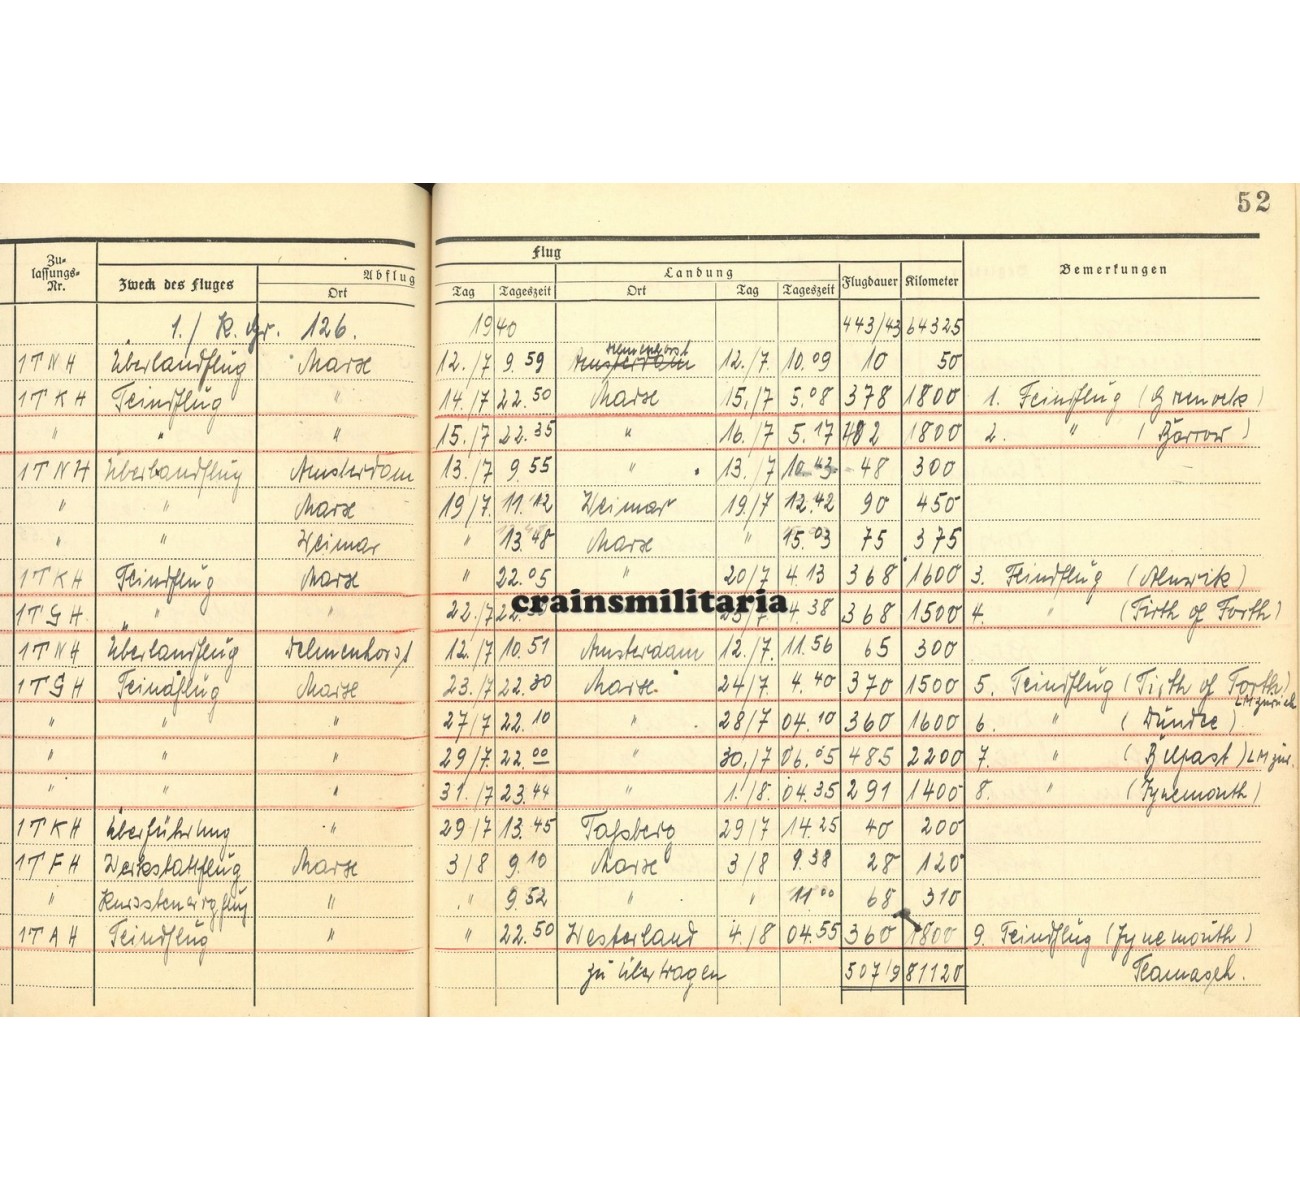 52
Flug
Zu-
lassungs-
Nr.
Zweck des Fluges
Abflug
Landung
Flugdauer
Kilometer
Bemerkungen
Ort
Tag Tageszeit Ort Tag Tageszeit
1./ K. Gr. 126. 1940 443/43 64325
1TNH Überlandflug Marx 12./7 9.59 Amsterdam Delmenhorst 12./7. 10.09 10 50
1TKH Feindflug " 14./7 22.50 Marx 15./7 5.08 378 1800 1. Feindflug (Grenock)
" " " 15./7 22.35 " 16./7 5.17 402 1800 2. " (Barrow)
1TNH Überlandflug Amsterdam 13./7 9.55 " 13./7 10.43 48 300
" " Marx 19/7 11.12 Weimar 19./7 12.42 90 450
" " Weimar " 13.48 Marx " 15.03 75 375
1TKH Feindflug Marx " 22.05 " 20/7 4.13 368 1600 3. Feindflug (Alnwik)
1TGH " " 22./7 4.38 368 1500 4. " (Firth of Forth)
crainsmilitaria
1TNH Überlandflug Delmenhorst 12./7 10.51 Amsterdam 12./7. 11.56 65 300
1TGH Feindflug Marx 23./7 22.30 Marx 24/7. 4.40 370 1500 5. Feindflug (Firth of Forth)
LM zurück
" " " 27/7 22.10 " 28/7 04.10 360 1600 6. " (Dundee)
" " " 29/7. 22.00 " 30./7 06.05 485 2200 7. " (Belfast) LM zur.
" " " 31./7 23.44 " 1./8. 04.35 291 1400 8. " (Tynemouth)
1TKH Überführung " 29/7 13.45 Faßberg 29/7 14.25 40 200
1TFH Werkstattflug Marx 3/8 9.10 Marx 3/8 9.38 28 120
" " " 9.52 " " 11.00 68 310
1TAH Feindflug " " 22.50 Westerland 4./8 04.55 360 1800 9. Feindflug (Tynemouth)
zu übertragen 507/9 81120